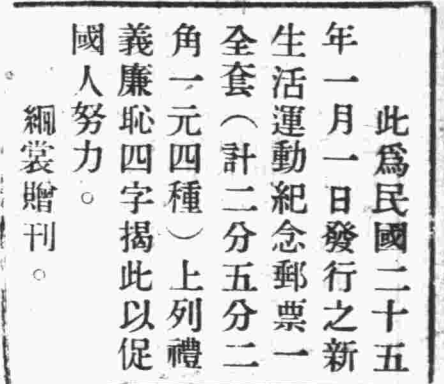 此爲民國二十五
年一月一日發行之新
生活運動紀念郵票一
全套（計二分五分二
角一元四種）上列禮
義廉恥四字揭此以促
國人努力。
綱裳贈刊。